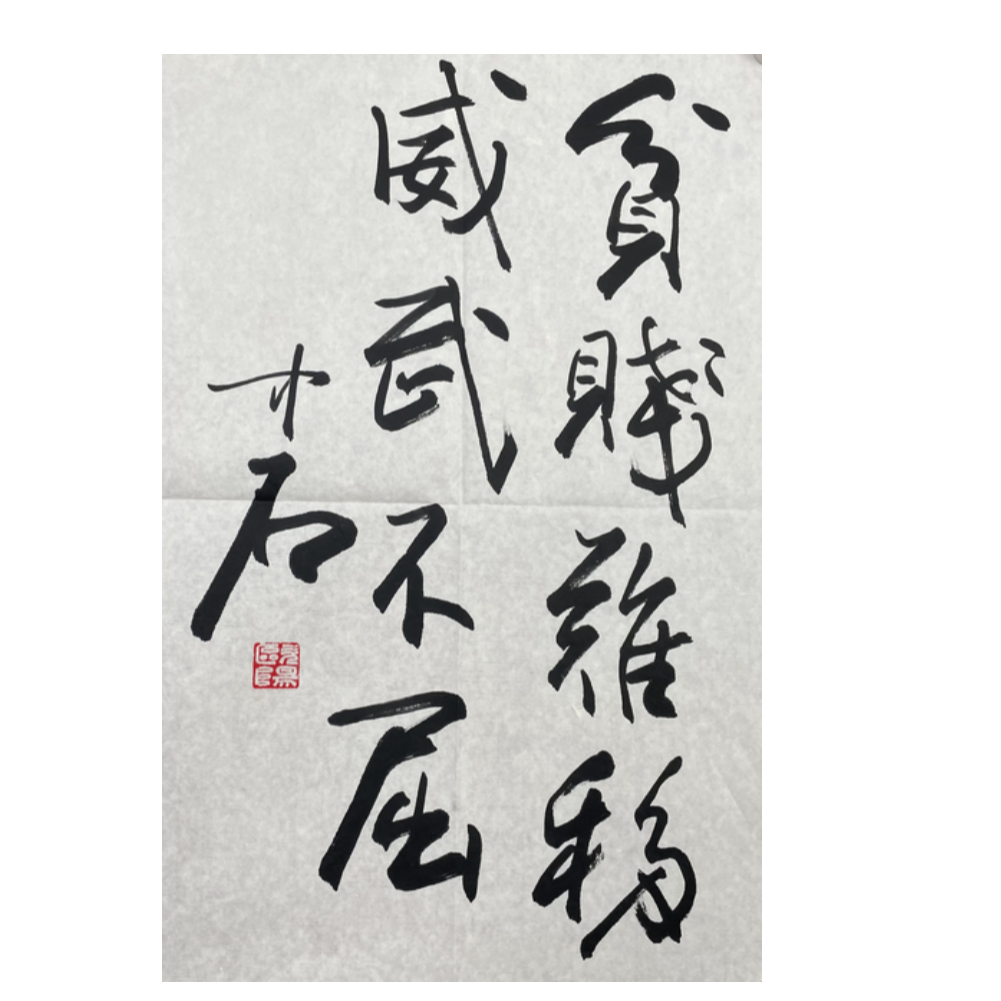 貧賤難移
威武不屈
石